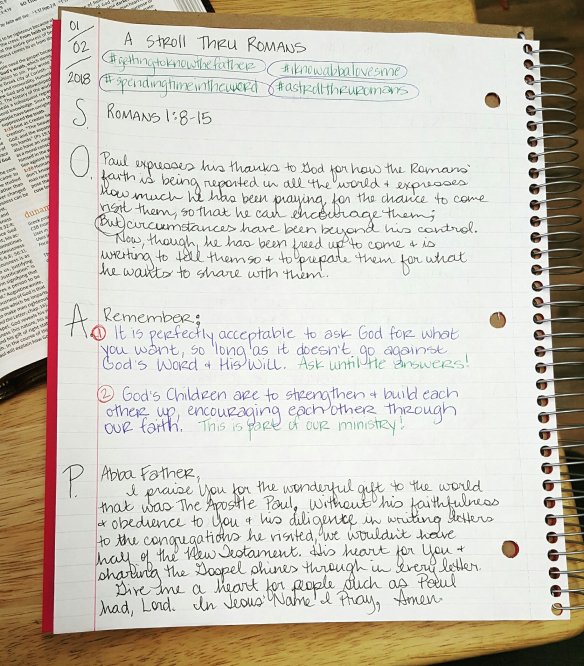 01
/
02
/
2018
A STROLL THRU ROMANS
#gettingtoknowthefather #iknowabbalovesme
#spendingtimeintheword #astrollthruromans
S. ROMANS 1:8-15
O. Paul expresses his thanks to God for how the Romans'
faith is being reported in all the world + expresses
how much he has been praying for the chance to come
visit them, so that he can encourage them;
But circumstances have been beyond his control.
Now, though, he has been freed up to come + is
writing to tell them so + to prepare them for what
he wants to share with them.
A. Remember:
1 It is perfectly acceptable to ask God for what
you want, so long as it doesn't go against
God's Word + His Will. Ask until He answers!
2 God's Children are to strengthen + build each
other up, encouraging each other through
our faith. This is part of our ministry!
P. Abba Father,
I praise You for the wonderful gift to the world
that was The Apostle Paul. Without his faithfulness
+ obedience to You + his diligence in writing letters
to the congregations he visited, we wouldn't have
half of the New Testament. His heart for You +
sharing the Gospel shines through in every letter.
Give me a heart for people such as Paul
had, Lord. In Jesus' Name I Pray, Amen